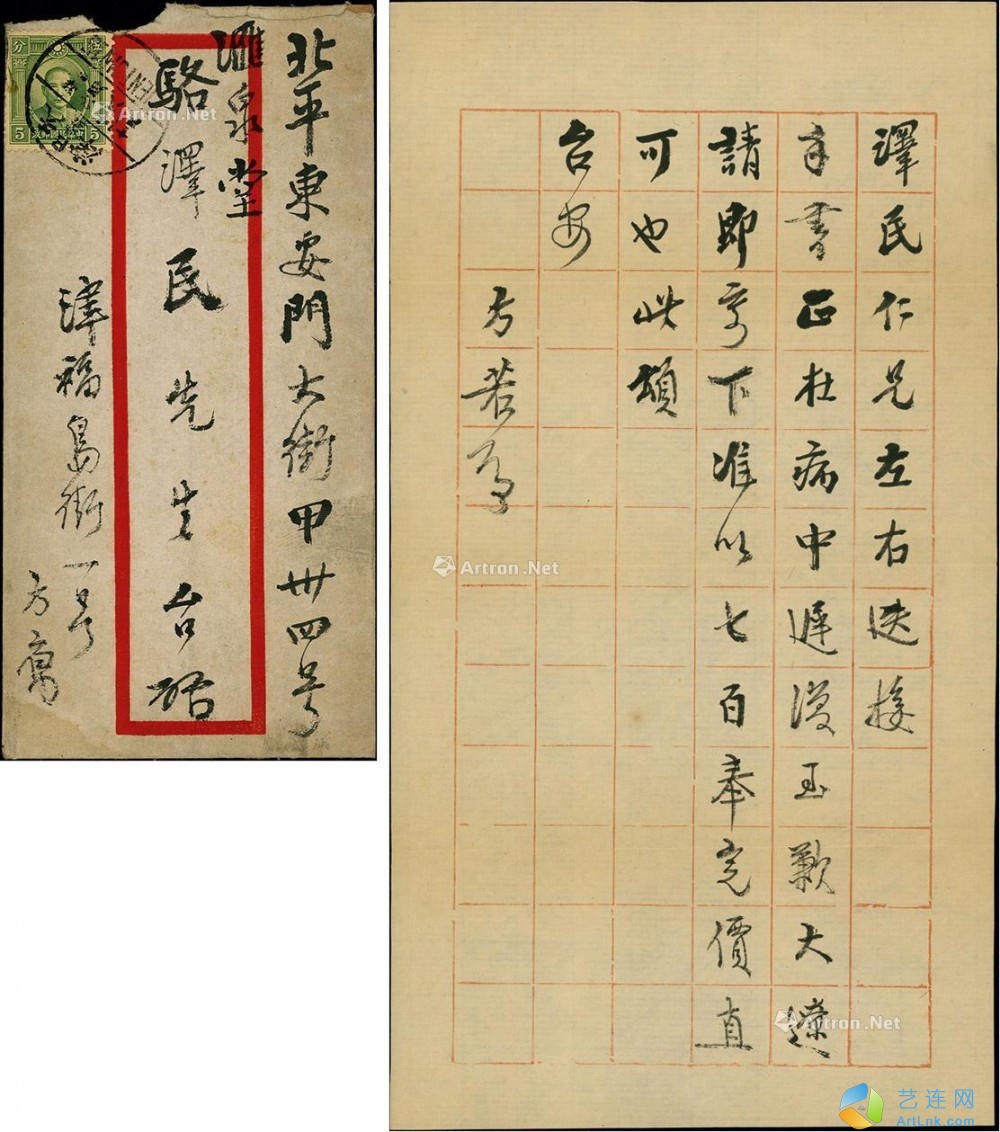 北平東安門大街甲卅四号
滙泉堂
駱澤民先生台啓
津福島街一号
方寄
分
5 5
澤民仁兄左右迭接
手書正在病中遲復至歉大遼
請即寄下准以七百奉完價直
可也此頌
台安
方若
Artron.Net
Artron.Net
Artron.Net
艺连网
ArtLnk.com